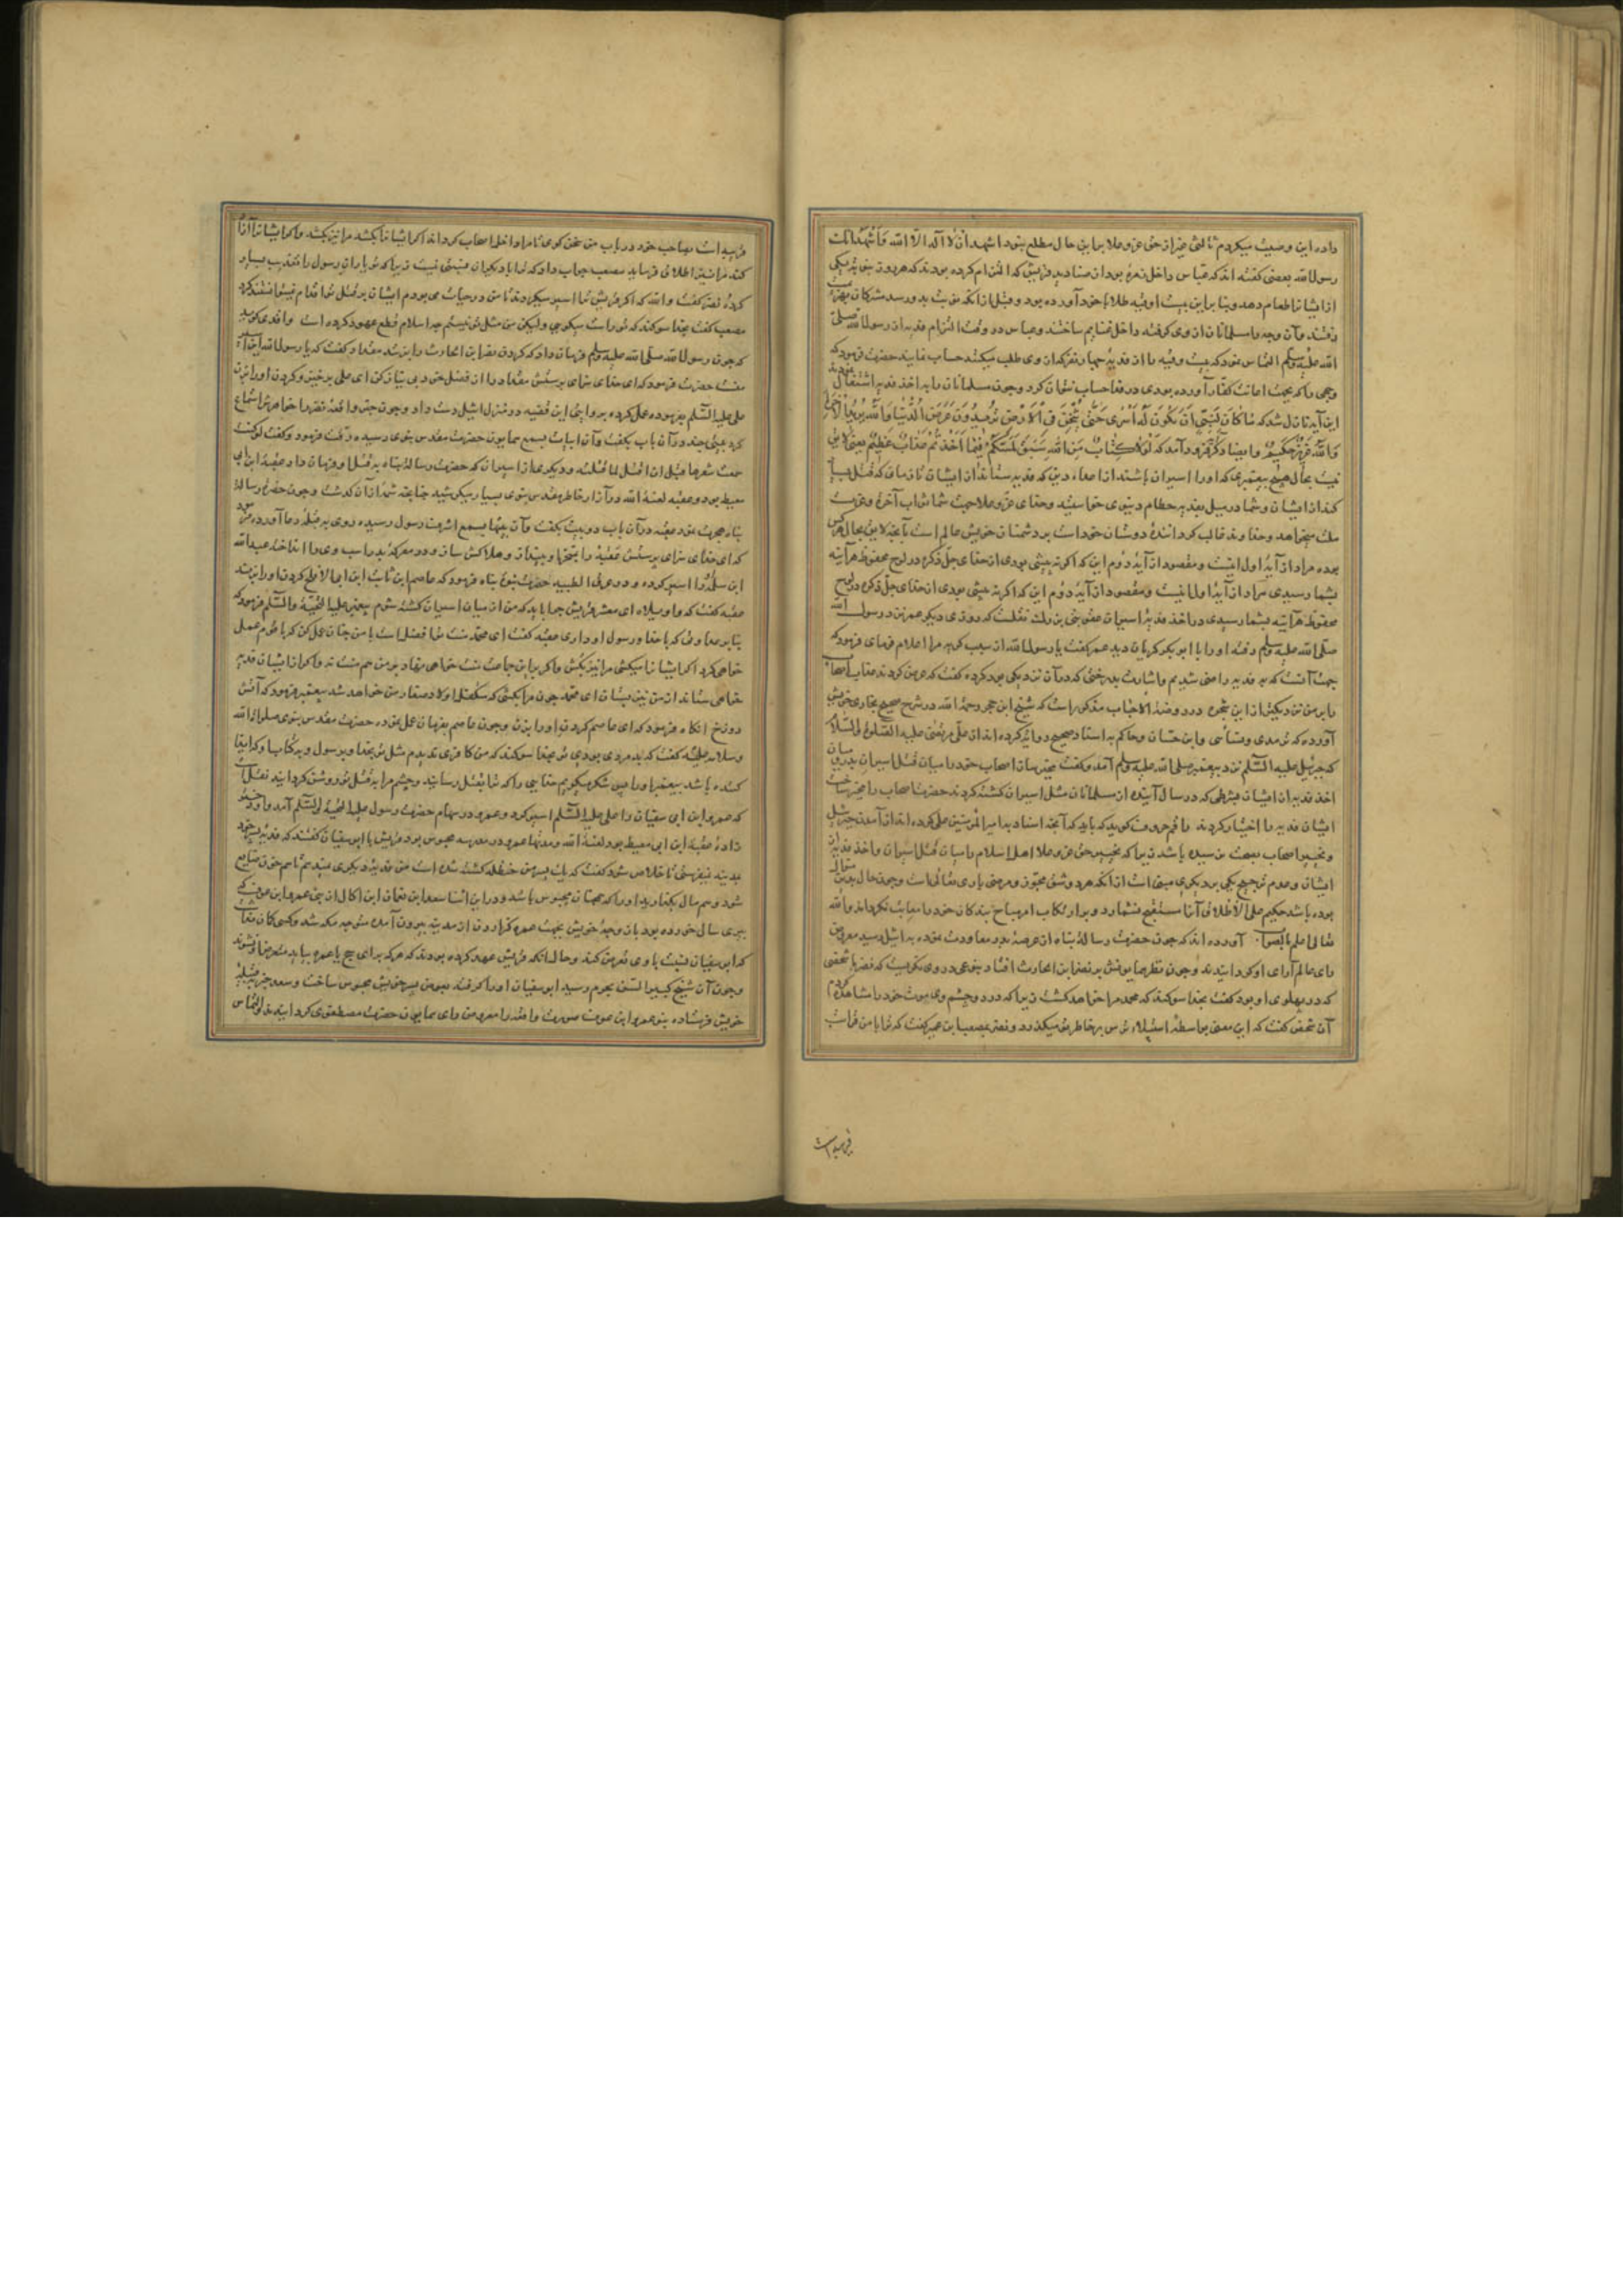 داده این وصیت میکردم ثالثی غیر از حق عز و علا برما بر این حال مطلع نبود اشهد ان لا اله الا الله و اشهد انک
رسول الله بعضی گفته اند که عباس داخل زمرهٔ بود از صنادید قریش که التزام کرده بودند که هر روز یکی
از ایشان اطعام دهد و بنا بر این بیست اوقیه طلا با خود آورده بود و قبل از آنکه نوبت بدو رسد مشرکان
رفتند و آن وجه را مسلمانان از وی گرفته داخل غنایم ساختند و عباس در وقت التزام فدیه از رسول الله صلی
الله علیه وسلم التماس نمود که بیست اوقیه را از فدیه چهار نفر که از وی طلب میکنند حساب نمایند حضرت فرمود که
وجهی را که بجهت اعانت کفار آورده بودی در فدا حساب نتوان کرد و چون مسلمانان را به اخذ فدیه اشتغال نمودند
این آیه نازل شد که ما کان لنبی ان یکون له اسری حتی یثخن فی الارض تریدون عرض الدنیا والله یرید الآخرة
والله عزیز حکیم و ایضا فرود آمد که لولا کتاب من الله سبق لمسکم فیما اخذتم عذاب عظیم یعنی لایق
نیست بحال هیچ پیغمبری که او را اسیران باشند از اعداء دین که فدیه ستاند از ایشان تا زمان که قتل بسیار
کند از ایشان و شما در بدل فدیه حطام دنیوی خواستید و خدای عز و علا جهت شما ثواب آخرة
میخواهد و خداوند غالب گرداننده دوستان خود است بر دشمنان خویش عالم است بآنچه لایق بحال هر کس
بوده مراد از آیهٔ اول اینست و مقصود از آیه دوم این که اگر نه پیشی بودی از خدای جل ذکره در لوح محفوظ هر آینه
بشما رسیدی مراد از آیه اول اینست و مقصود از آیهٔ دوم این که اگر نه پیشی بودی از خدای جل ذکره در لوح
محفوظ هر آینه بشما رسیدی در اخذ فدیه اسیران عقوبتی بزرگ نقلست که روزی دیگر عمر نزد رسول الله
صلی الله علیه وسلم رفته او را با ابوبکر گریان دید عمر گفت یا رسول الله از سبب گریه مرا اعلام فرمای فرمود که
جهت آنست که به فدیه راضی شدیم و اشارت بدرختی که در آن نزدیکی بود کرده گفت که عرض کردند عذاب اصحاب
را بر من نزدیکتر از این شجره در روضة الاحباب مذکور است که شیخ ابن حجر رحمة الله در شرح صحیح بخاری خویش
آورده که ترمدی و نسائی و ابن حبان و حاکم به اسناد صحیح روایه کرده اند از علی مرتضی علیه الصلوة والسلام
که جبرئیل علیه السلام نزد پیغمبر صلی الله علیه وسلم آمد و گفت مخیر ساز اصحاب خود را میان قتل اسیران بدر و میان
اخذ فدیه از ایشان بشرطی که در سال آینده از مسلمانان مثل اسیران کشته گردند حضرت اصحاب را مخیر ساخت
ایشان فدیه را اختیار کردند راقم حروف گوید که باید که آنچه اسناد به امیر المؤمنین علی کرده اند از آمدن جبرئیل
و تخییر اصحاب بصحت نرسیده باشد زیرا که تخییر حق عز و علا اهل اسلام را میان قتل اسیران و اخذ فدیه از
ایشان و عدم ترجیح یکی بر دیگری مبنی است از آنکه هر دو شق مجوز و مرضی باری تعالی است و چون حال بدین منوال
بوده باشد حکیم علی الاطلاق آنرا مستقبح نشمارد و بر ارتکاب امر مباح بندکان خود را معاتب نگرداند والله
تعالی اعلم بالصواب آورده اند که چون حضرت رسالة پناه از عرصهٔ بدر معاودت نموده به اثیل رسید معروض
رای عالم آرای او گردانیدند و چون نظر همایونش بر نضر ابن الحارث افتاد بنوعی در وی نگریست که نضر با شخصی
که در پهلوی او بود گفت بخدا سوگند که محمد مرا خواهد کشت زیرا که در دو چشم وی موت خود را مشاهده کردم
آن شخص گفت که این معنی بواسطهٔ استیلاء ترس بر خاطر تو میگذرد و نضر بمصعب ابن عمیر گفت که ترا با من قرابت
قریبه است
قریبه است بصاحب خود در باب من سخن گوی تا مرا داخل اصحاب گرداند اگر ایشان را بکشد مرا نیز بکشد و اگر ایشان را آزاد
کند مرا نیز اطلاق فرماید مصعب جواب داد که ترا با دیگران نسبتی نیست زیرا که تو یاران رسول را تعذیب بسیار
کردهٔ نضر گفت والله که اگر قریش ترا اسیر میکردند تا من در حیات می بودم ایشان بر قتل تو اقدام نمیتوانستند کرد
مصعب گفت بخدا سوگند که تو راست میگویی ولیکن من مثل تو نیستم چه اسلام قطع عهود کرده است واقدی گوید
که چون رسول الله صلی الله علیه وسلم فرمان داد که گردن نضر ابن الحارث را بزنند مقداد گفت که یا رسول الله این اسیر
منست حضرت فرمود که ای خدای سزای پرستش مقداد را از فضل خود بی نیاز کن ای علی برخیز و گردن او را بزن
علی علیه السلام بفرموده عمل کرده بروایتی این قضیه در منزل اثیل دست داد و چون خبر واقعه نضر را خواهرش استماع
کرد بیتی چند در آن باب بگفت و آن ابیات بسمع همایون حضرت مقدس نبوی رسیده رقت فرمود و گفت لو کنت
سمعت شعرها قبل ان اقتل لما قتلته و دیگری از اسیران که حضرت رسالة پناه به قتل او فرمان داد عقبه ابن ابی
معیط بود و عقبه لعنة الله در آزار خاطر مقدس نبوی بسیار میکوشید چنانچه شمهٔ از آن گذشت و چون حضرت رسالة
پناه هجرت نمود عقبه در آن باب دو بیت بگفت و آن بیتها بسمع اشرف رسول رسیده روی به قبله دعا آورده فرمود
که ای خدای سزای پرستش عقبة را بتنحر و بینداز و هلاکش ساز و در معرکه بدر اسب وی را انداخته عبدالله
ابن سلمه او را اسیر کرده و در عرق الظبیه حضرت نبوة پناه فرمود که عاصم ابن ثابت ابن ابی الافلح گردن او را بزند
عقبه گفت که واویلاه ای معشر قریش چرا باید که من از میان اسیران کشته شوم پیغمبر علیه التحیة والسلم فرمود که
بنا بر عداوتی که با خدا و رسول او داری عقبه گفت ای محمد منت تو افضل است با من چنان عمل کن که با قوم عمل
خواهی کرد اگر ایشان را میکشی مرا نیز بکش و اگر بر این جماعت منت خواهی نهاد بر من هم منت نه و اگر از ایشان فدیه
خواهی ستاند از من نیز بستان ای محمد چون مرا بکشی که متکفل اولاد صغار من خواهد شد پیغمبر فرمود که آتش
دوزخ آنگاه فرمود که ای عاصم گردن او را بزن و چون عاصم بفرمان عمل نموده حضرت مقدس نبوی صلوات الله
وسلامه علیه گفت که بد مردی بودی تو بخدا سوگند که من کافری ندیدم مثل تو بخدا و برسول و به کتاب او که ایذا
کننده باشد پیغمبر او را پس شکر میگویم خدایی را که ترا بقتل رسانید و چشم مرا به قتل تو روشن گردانید نقلست
که عمرو ابن ابی سفیان را علی علیه السلم اسیر کرد و عمرو در سهام حضرت رسول علیه التحیة والسلم آمد و او دختر
زادهٔ عقبه ابن ابی معیط بود لعنة الله و مدتها عمرو در مدینه محبوس بود قریش با ابوسفیان گفتند که فدیه پسر خود
بمدینه نمیفرستی تا خلاص شود گفت که یک پسر من حنظله کشته شده است من فدیه دیگری بدهم تا هم خون ضایع
شود و هم مال بگذارید او را که همچنان محبوس باشد و در این اثنا سعد ابن نعمان ابن اکال از بنی عمرو ابن عوف که
پیری سال خورده بود با زوجهٔ خویش بجهت عمره گزاردن از مدینه بیرون آمده متوجه مکه شد و کسی گمان نداشت
که ابوسفیان نسبت با وی تعرض کند و حال آنکه قریش عهد کرده بودند که هر که برای حج یا عمره بیاید متعرض او نشوند
و چون آن شیخ کبیر السن بحرم رسید ابوسفیان او را گرفته بعوض پسر خویش محبوس ساخت و سعد خبر بقبیلهٔ
خویش فرستاده بنو عمرو ابن عوف صورت واقعه را معروض رای همایون حضرت مصطفوی گردانیدند و التماس